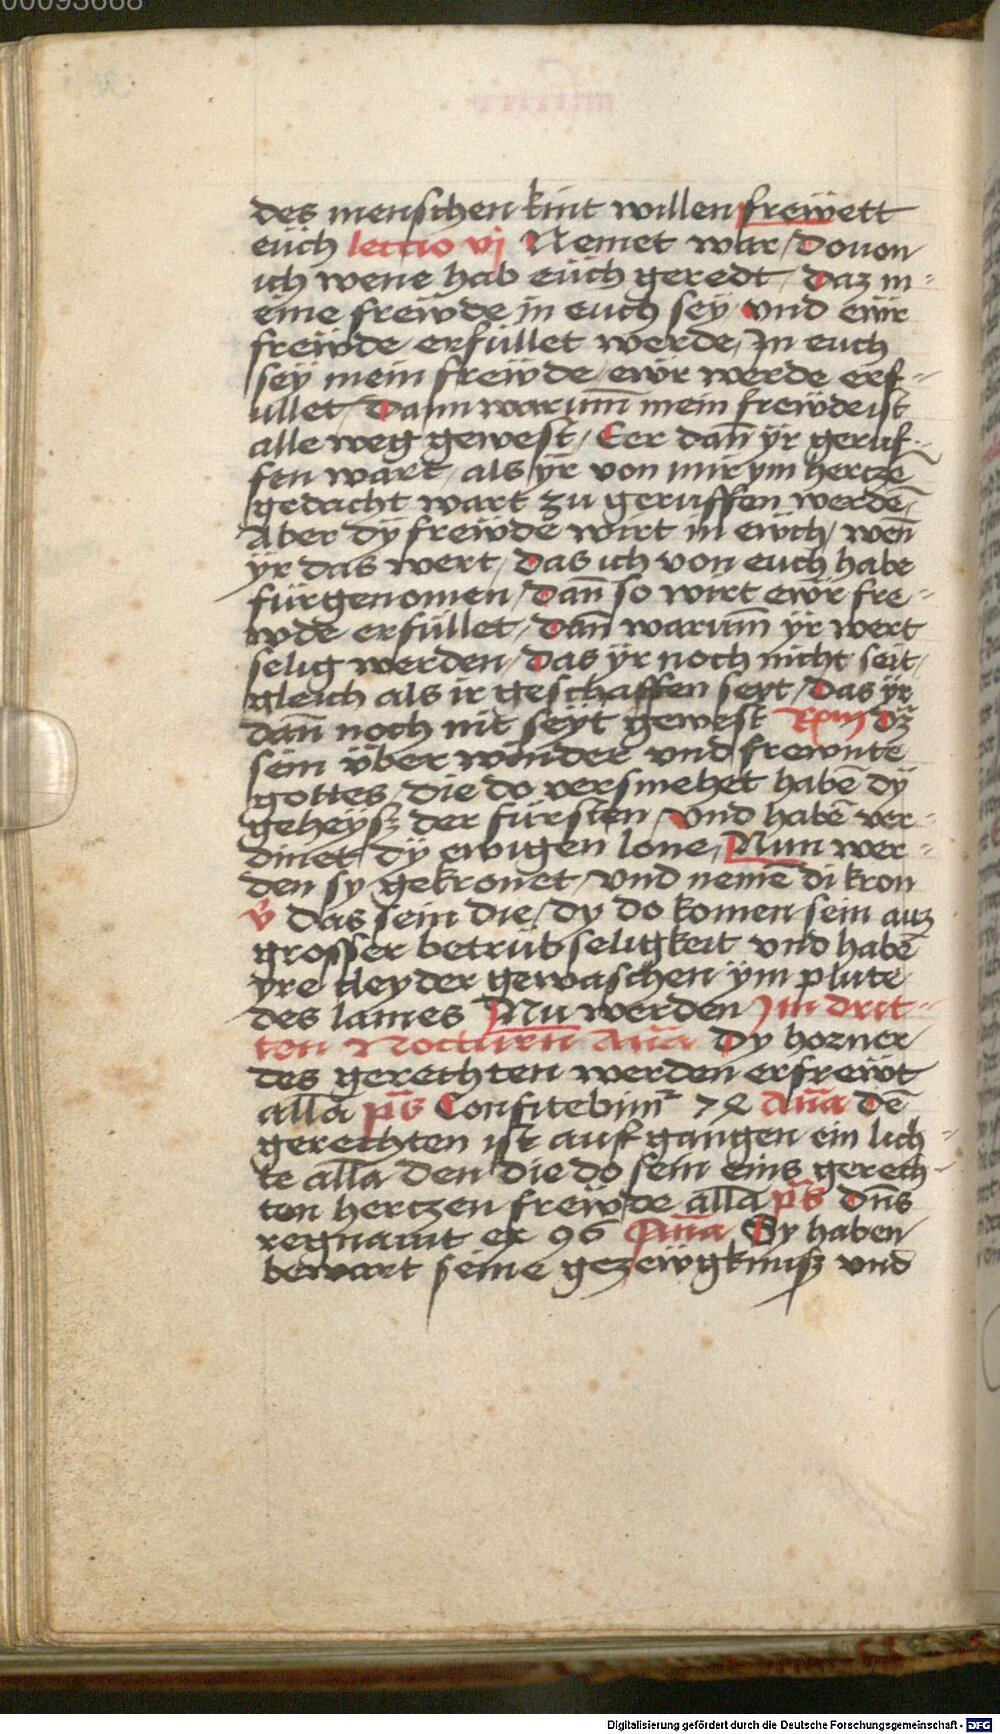 00093668
des menschen kint willen freẅett
eüch lectio vj Nemet war / Douon
ich wene hab eüch geredt / Daz m-
eine freẅde in euch sey vnd eẅr
freẅde erfüllet werde / In euch
sey mein freẅde / eẅr werde erf-
ullet / Dann warumm mein freẅde ist
alle weg gewest / Eer dan̄ ÿr geruf-
fen wart / als ÿr von mir ym hertzē
gedacht wart zu geruffen werdē
Aber dÿ freẅde wirt in eẅch / wen̄
ÿr das wert / Das ich von euch habe
fürgenomen / Dan̄ so wirt eẅr fre-
wde erfüllet / Dan̄ warum̄ ÿr wert
selig werden / Das ÿr noch nicht seit /
gleich als ir geschaffen seyt / Das ÿr
dan̄ noch nit seÿt gewest Rpm Dz
sein über winder vnd frewnte
gottes / die do versmehet habē dÿ
geheÿsz der fürsten / Vnd habē ver-
dinet dÿ ewigen lone / Nun wer-
den sy gekronet / vnd nemē di kron
v̊ das sein die / dy do komen sein auz
grosser betrübseligkeit vnd habē
yre kleyder gewaschen ÿm plute
des lames Nu werden Im drit-
ten Nocturn̄ An̄a Dy horner
des gerechten werden erfreẅt
alla ps̄ Confitebim² 72 An̄a Dē
gerechten ist auf gangen ein lich-
te alla den die do sein eins gerech-
ten hertzen freẅde alla ps̄ Dn̄s
regnauit ex 96 An̄a Sy haben
bewart seine gezeẅgknusz vnd
Digitalisierung gefördert durch die Deutsche Forschungsgemeinschaft - DFG